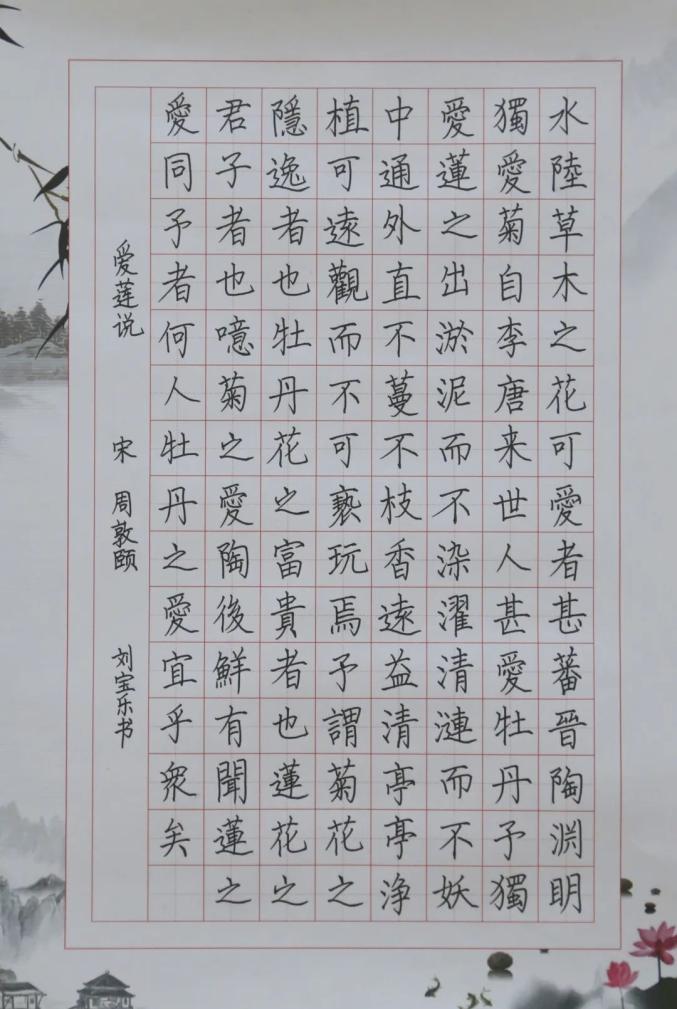 水陸草木之花可愛者甚蕃晉陶淵明
獨愛菊自李唐来世人甚愛牡丹予獨
愛蓮之出淤泥而不染濯清漣而不妖
中通外直不蔓不枝香遠益清亭亭浄
植可遠觀而不可褻玩焉予謂菊花之
隱逸者也牡丹花之富貴者也蓮花之
君子者也噫菊之愛陶後鮮有聞蓮之
愛同予者何人牡丹之愛宜乎衆矣
爱莲说 宋 周敦颐 刘宝乐书